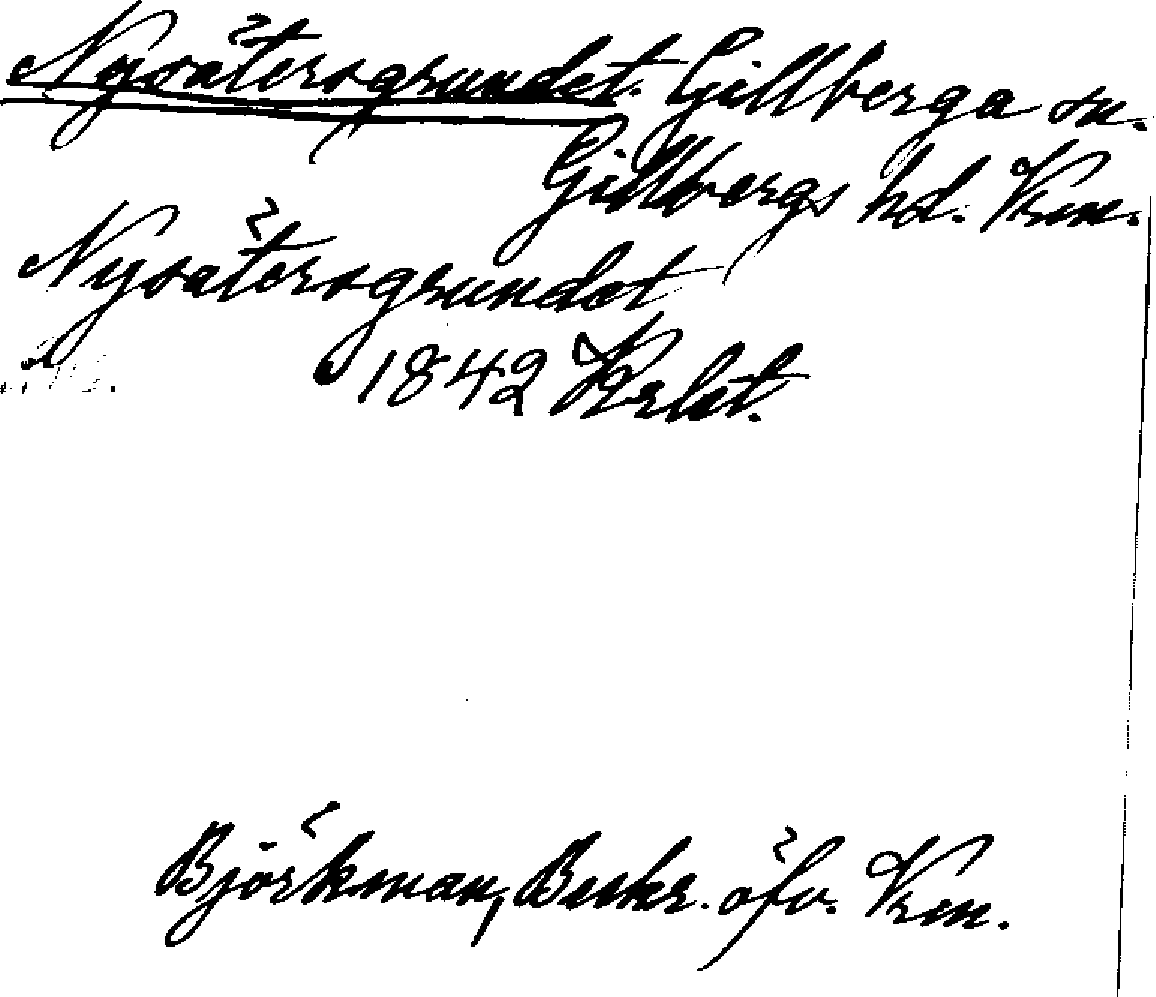 Nysätersgrundet. Gillberga sn.
Gillbergs hd. Vrm.
Nysätersgrundet
1842 Krlst.
Björkman, Beskr. öfv. Vrm.